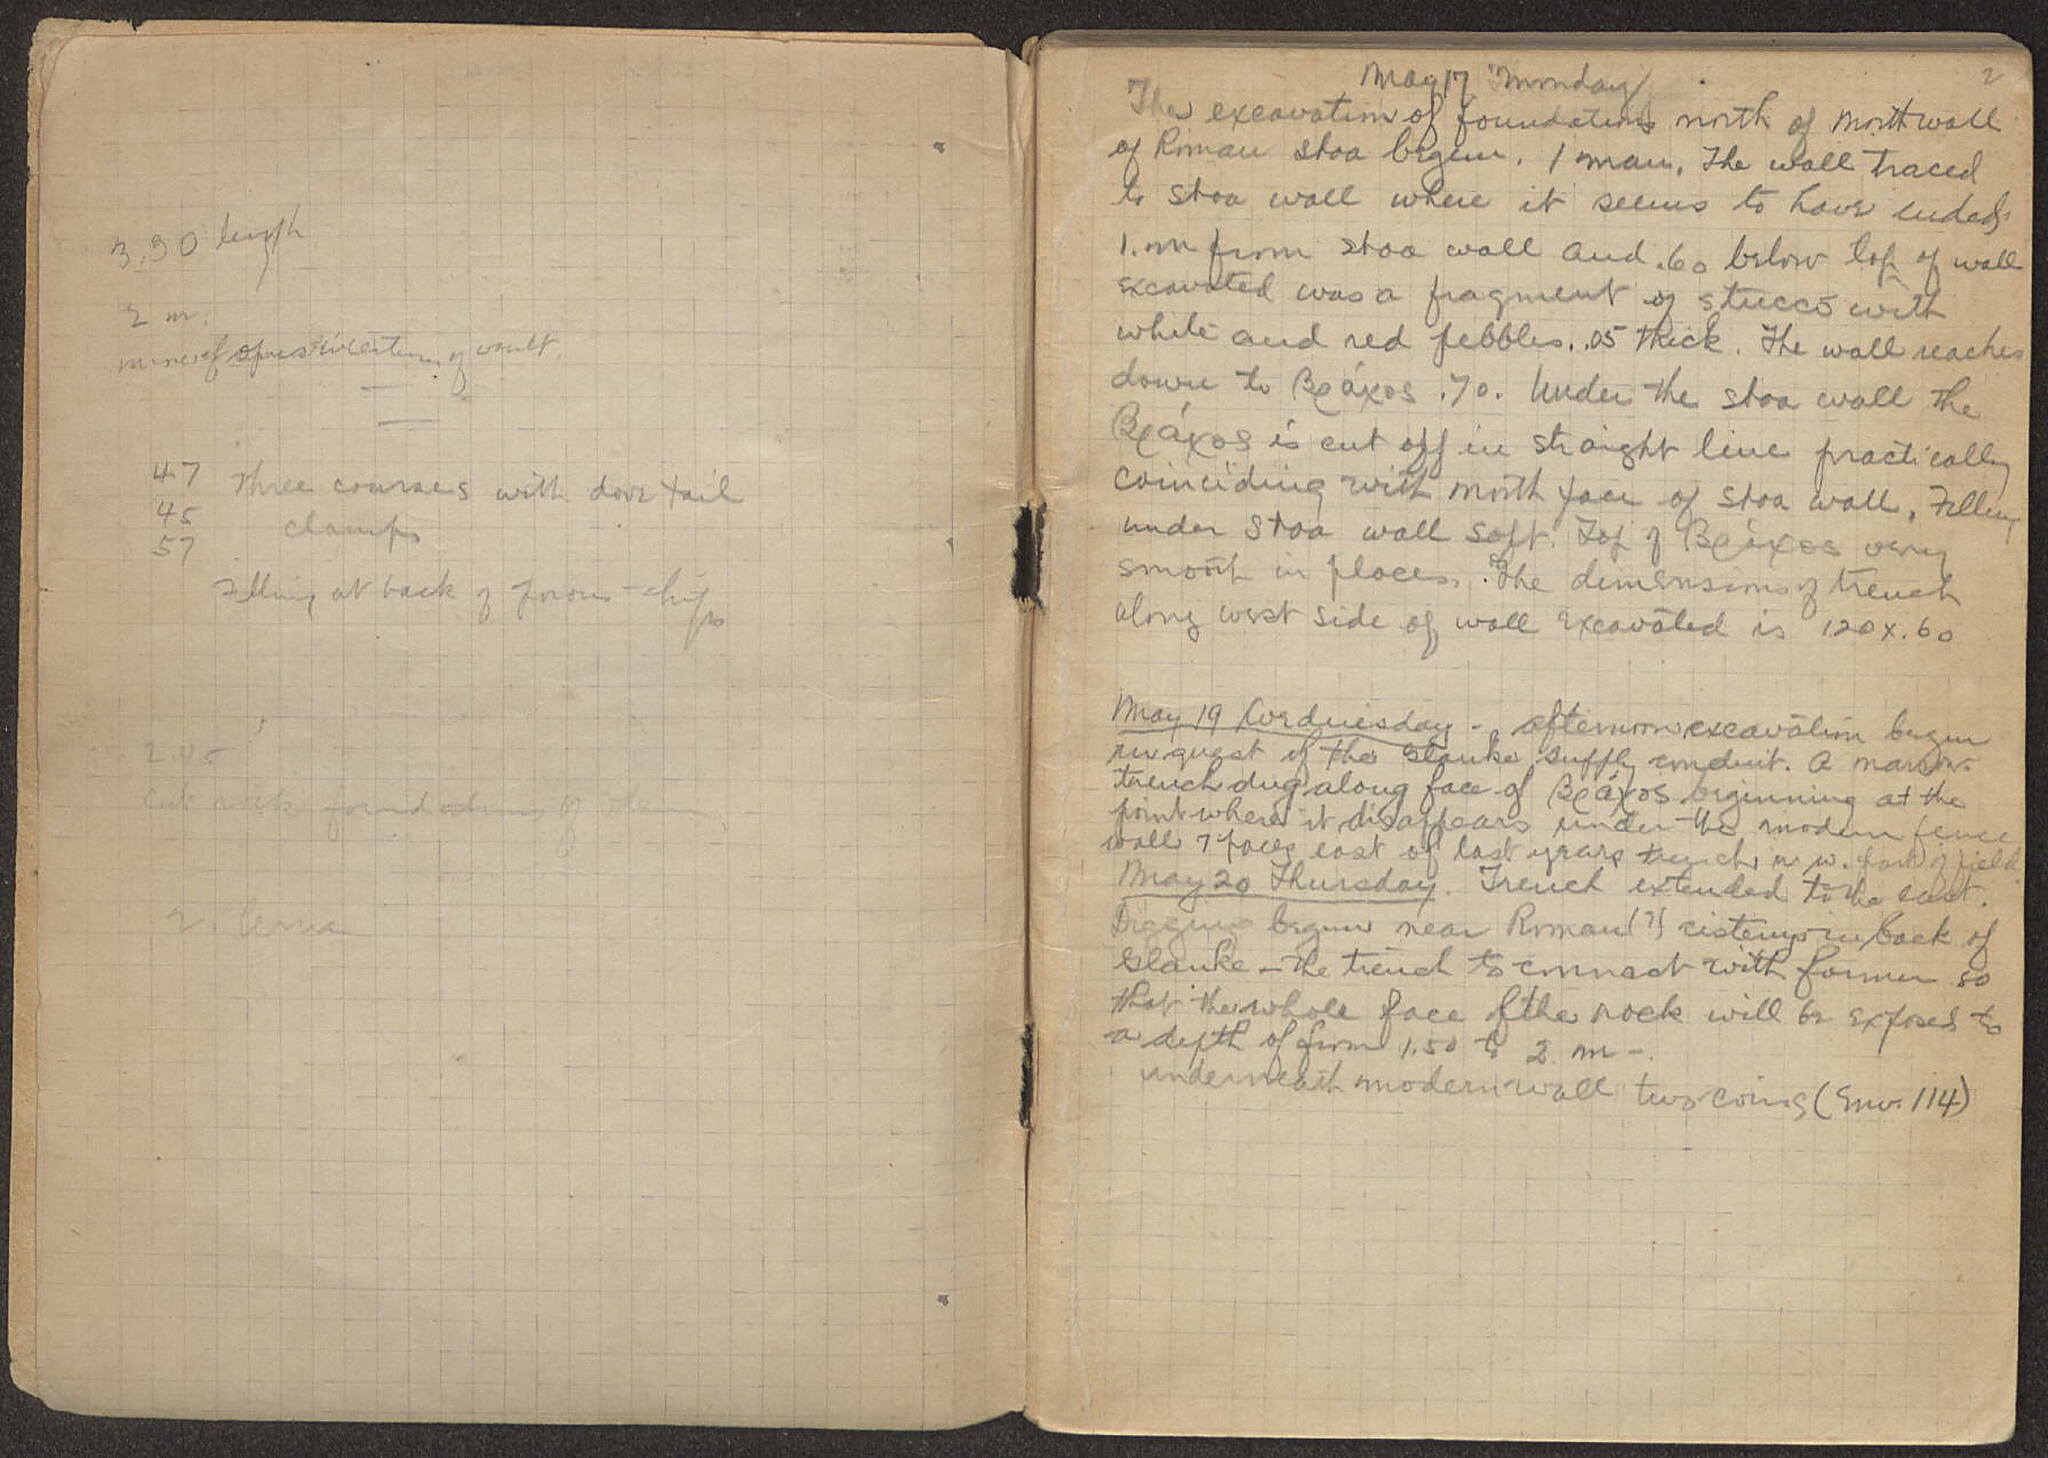 3.90 length
2 m.
of opus incertum of vault.
47 Three courses with dove tail
45 clamps
57
Filling at back of poros chips
2.45
cut rock foundations of
2
May 17 Monday
The excavation of foundations north of North wall
of Roman stoa begun. 1 man. The wall traced
to stoa wall where it seems to have ended.
1. m from stoa wall and .60 below top of wall
excavated was a fragment of stucco with
white and red pebbles. .05 thick. The wall reaches
down to Βράχος .70. Under the stoa wall the
Βράχος is cut off in straight line practically
coinciding with north face of stoa wall. Filling
under stoa wall soft. Top of Βράχος very
smooth in places. The dimensions of trench
along west side of wall excavated is 120 x .60
May 19 Wednesday - afternoon excavation begun
in quest of the Glauke supply conduit. A narrow
trench dug along face of Βράχος beginning at the
point where it disappears under the modern fence
wall 7 paces east of last years trench in w. part of field.
May 20 Thursday. Trench extended to the east.
Digging begun near Roman (?) cisterns in back of
Glauke - the trench to connect with former so
that the whole face of the rock will be exposed to
a depth of from 1.50 to 2 m -.
underneath modern wall two coins (Env. 114)